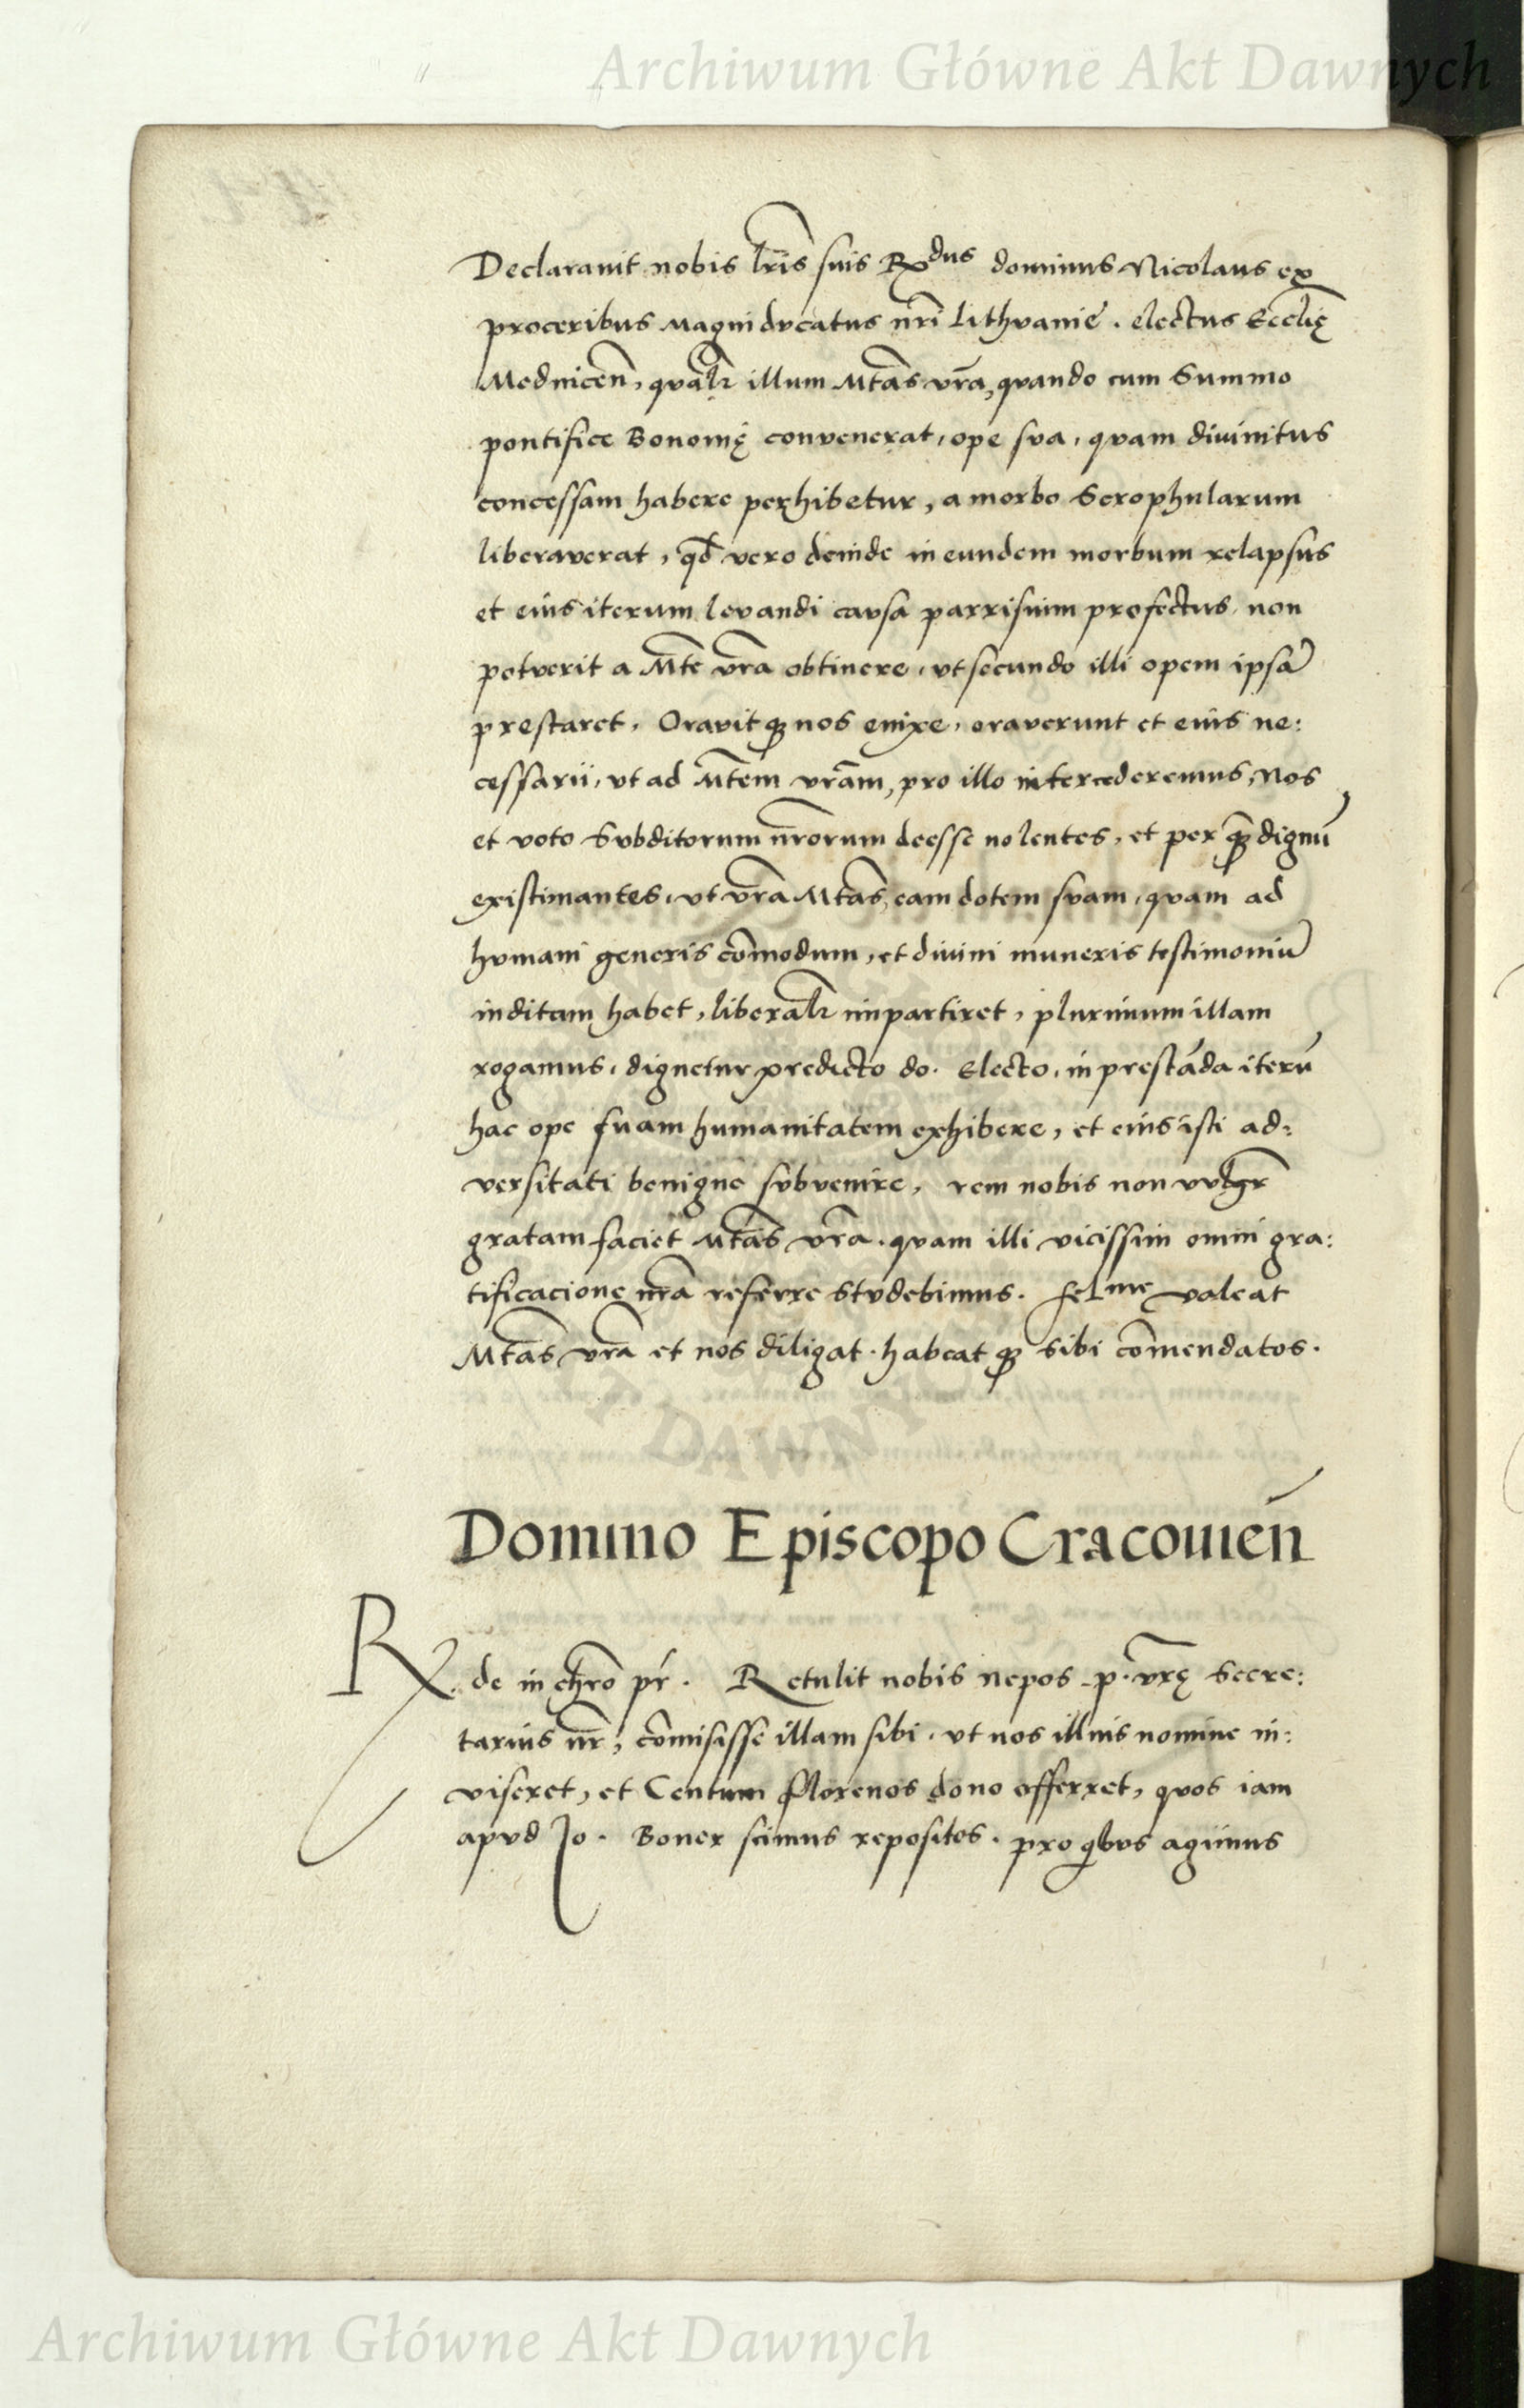 Archiwum Główne Akt Dawnych
Declarauit nobis lr̃is suis Rdus dominus Nicolaus ex
proceribus Magni dvcatus nr̃i Lithvanie . electus Eccl̃ię
Mednicen̄, qvalr̃ illum Mtãs vr̃a, qvando cum Summo
pontifice Bononię convenerat, ope sva, qvam diuinitus
concessam habere perhibetur, a morbo Scrophularum
liberaverat, qd̃ vero deinde in eundem morbum relapsus
et eius iterum levandi cavsa parrisium profectus, non
potverit a Mt̃e vr̃a obtinere, vt secundo illi opem ipsã
prestaret. Oravitqꝫ nos enixe, oraverunt et eius ne:
cessarii, vt ad Mt̃em vr̃am, pro illo intercederemus, Nos
et voto Svbditorum nr̃orum deesse nolentes, et per qꝫ̃ dignũ
existimantes, vt vr̃a Mtãs, eam dotem svam, qvam ad
hvmani generis com̃odum, et diuini muneris testimoniũ
inditam habet, liberalr̃ impartiret, plurimum illam
rogamus, dignetur predicto do. Electo, in prestãda iterũ
hac ope suam humanitatem exhibere, et eius isti ad:
versitati benigne svbvenire, rem nobis non vvlgr̃
gratam faciet Mtãs vr̃a . qvam illi vicissim omni gra:
tificacione nr̃a referre Stvdebimus. fel̃me valeat
Mtãs vr̃a et nos diligat . habeat qꝫ sibi com̃endatos.
Domino Episcopo Cracouien̄
R. de in chr̃o pr̃ . Retulit nobis nepos p. vr̃ę Secre:
tarius nr̃, com̃isisse illam sibi, vt nos illius nomine in:
viseret, et Centum florenos dono offerret, qvos iam
apvd Jo. Boner scimus repositos. pro qibvs agimus
Archiwum Główne Akt Dawnych